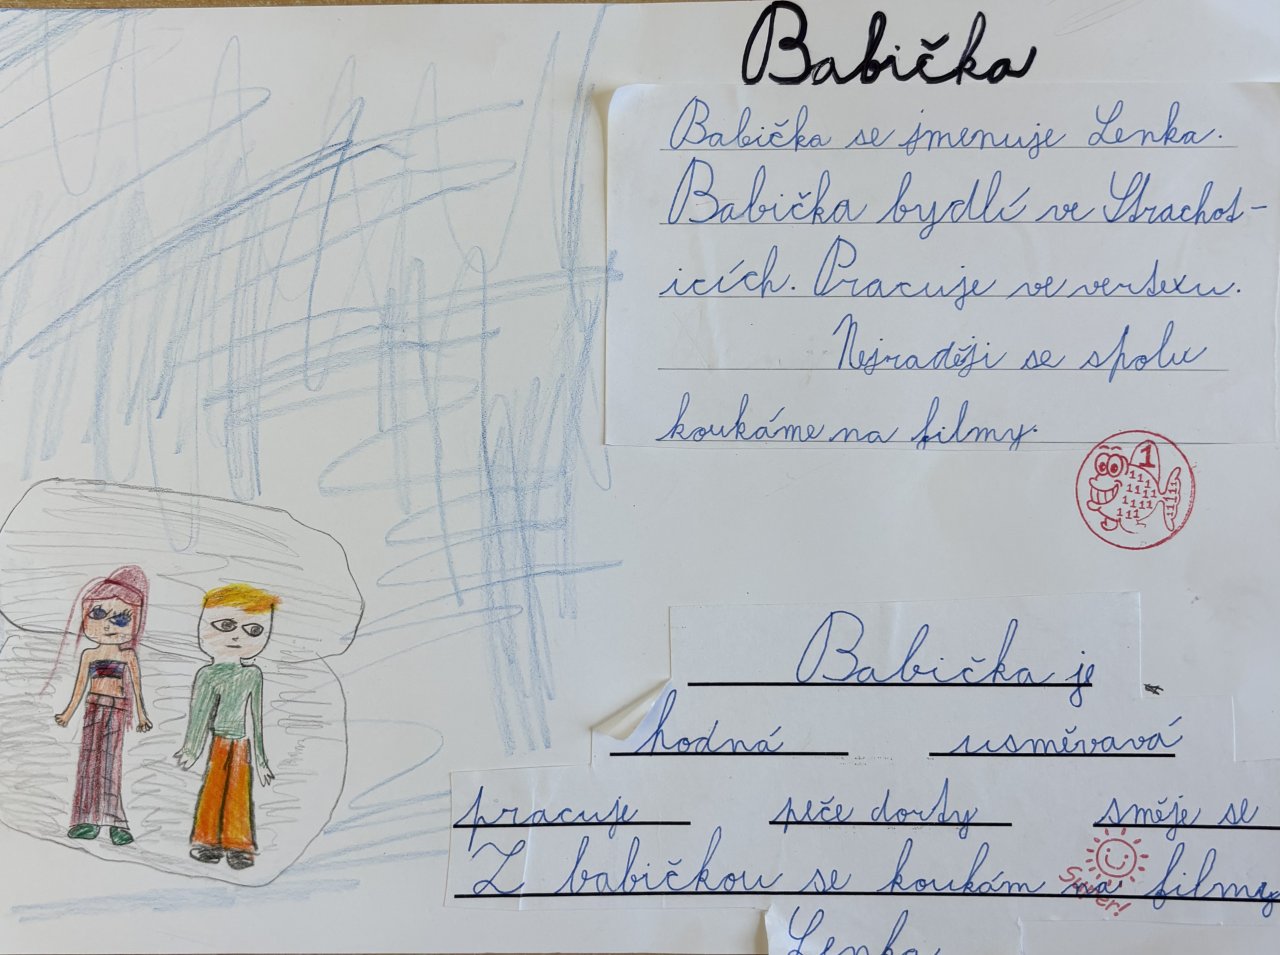 Babička
Babička se jmenuje Lenka.
Babička bydlí ve Strachot-
icích. Pracuje ve vertexu.
Nejraději se spolu
koukáme na filmy.
1
Babička je
hodná usměvavá
pracuje peče dorty směje se
Z babičkou se koukám na filmy
Super!
Lenka